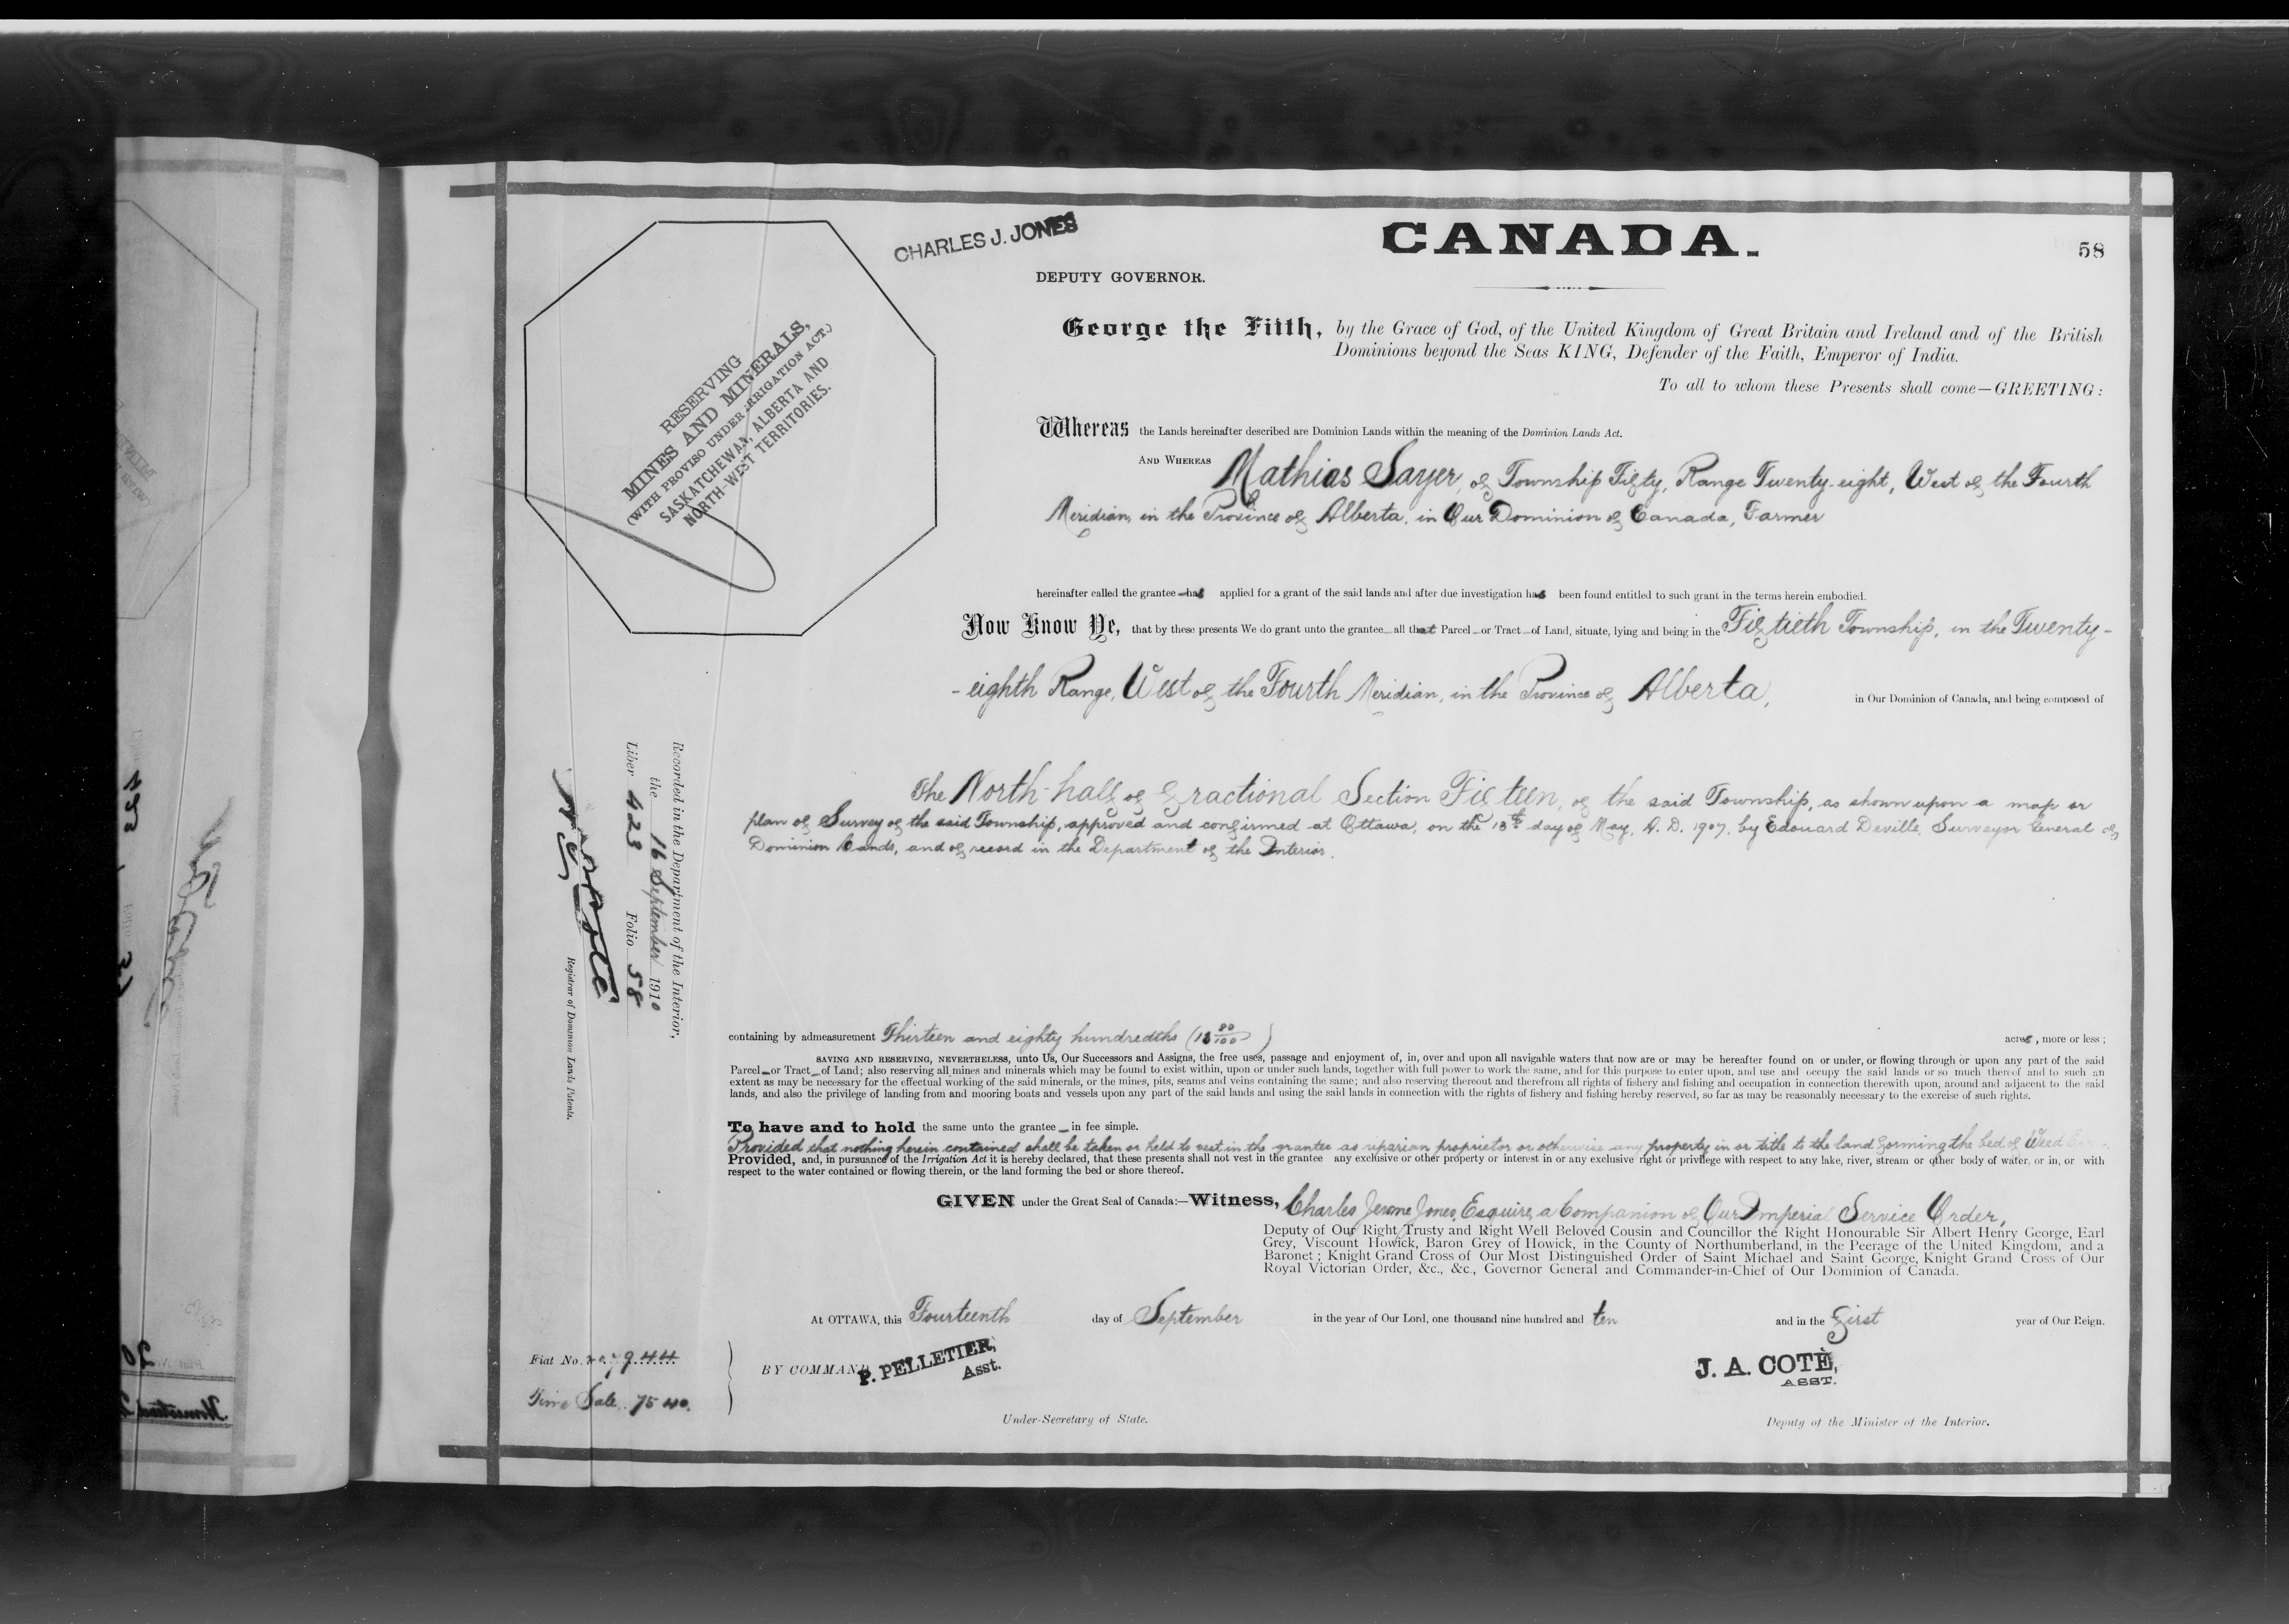 CANADA.
58
CHARLES J. JONES
DEPUTY GOVERNOR.
George the Fifth, by the Grace of God, of the United Kingdom of Great Britain and Ireland and of the British
Dominions beyond the Seas KING, Defender of the Faith, Emperor of India.
To all to whom these Presents shall come—GREETING:
RESERVING
MINES AND MINERALS,
(WITH PROVISO UNDER IRRIGATION ACT.)
SASKATCHEWAN, ALBERTA AND
NORTH-WEST TERRITORIES.
Whereas the Lands hereinafter described are Dominion Lands within the meaning of the Dominion Lands Act.
AND WHEREAS Mathias Sayer, of Township Fifty, Range Twenty-eight, West of the Fourth
Meridian, in the Province of Alberta, in Our Dominion of Canada, Farmer
hereinafter called the grantee has applied for a grant of the said lands and after due investigation has been found entitled to such grant in the terms herein embodied.
Now Know Ye, that by these presents We do grant unto the grantee all that Parcel or Tract of Land, situate, lying and being in the Fiftieth Township, in the Twenty-
-eighth Range, West of the Fourth Meridian, in the Province of Alberta, in Our Dominion of Canada, and being composed of
The North-half of fractional Section Fifteen, of the said Township, as shown upon a map or
plan of Survey of the said Township, approved and confirmed at Ottawa, on the 13th day of May, A.D. 1907, by Edouard Deville, Surveyor General of
Dominion Lands, and of record in the Department of the Interior.
Recorded in the Department of the Interior,
the 16 September 1910
Liber 423 Folio 58
Registrar of Dominion Lands Patents.
containing by admeasurement Thirteen and eighty hundredths (13 80/100) acres, more or less;
SAVING AND RESERVING, NEVERTHELESS, unto Us, Our Successors and Assigns, the free uses, passage and enjoyment of, in, over and upon all navigable waters that now are or may be hereafter found on or under, or flowing through or upon any part of the said
Parcel or Tract of Land; also reserving all mines and minerals which may be found to exist within, upon or under such lands, together with full power to work the same, and for this purpose to enter upon, and use and occupy the said lands or so much thereof and to such an
extent as may be necessary for the effectual working of the said minerals, or the mines, pits, seams and veins containing the same; and also reserving thereout and therefrom all rights of fishery and fishing and occupation in connection therewith upon, around and adjacent to the said
lands, and also the privilege of landing from and mooring boats and vessels upon any part of the said lands and using the said lands in connection with the rights of fishery and fishing hereby reserved, so far as may be reasonably necessary to the exercise of such rights.
To have and to hold the same unto the grantee in fee simple.
Provided that nothing herein contained shall be taken or held to vest in the grantee as riparian proprietor or otherwise any property in or title to the land forming the bed of Weed
Provided, and, in pursuance of the Irrigation Act it is hereby declared, that these presents shall not vest in the grantee any exclusive or other property or interest in or any exclusive right or privilege with respect to any lake, river, stream or other body of water, or in, or with
respect to the water contained or flowing therein, or the land forming the bed or shore thereof.
GIVEN under the Great Seal of Canada:—Witness, Charles Jerome Jones, Esquire, a Companion of Our Imperial Service Order,
Deputy of Our Right Trusty and Right Well Beloved Cousin and Councillor the Right Honourable Sir Albert Henry George, Earl
Grey, Viscount Howick, Baron Grey of Howick, in the County of Northumberland, in the Peerage of the United Kingdom, and a
Baronet; Knight Grand Cross of Our Most Distinguished Order of Saint Michael and Saint George, Knight Grand Cross of Our
Royal Victorian Order, &c., &c., Governor General and Commander-in-Chief of Our Dominion of Canada.
At OTTAWA, this Fourteenth day of September in the year of Our Lord, one thousand nine hundred and ten and in the first year of Our Reign.
BY COMMAND
P. PELLETIER,
Asst.
J. A. COTÈ,
ASST.
Fiat No.
Time Sale. 7540.
Under-Secretary of State.
Deputy of the Minister of the Interior.